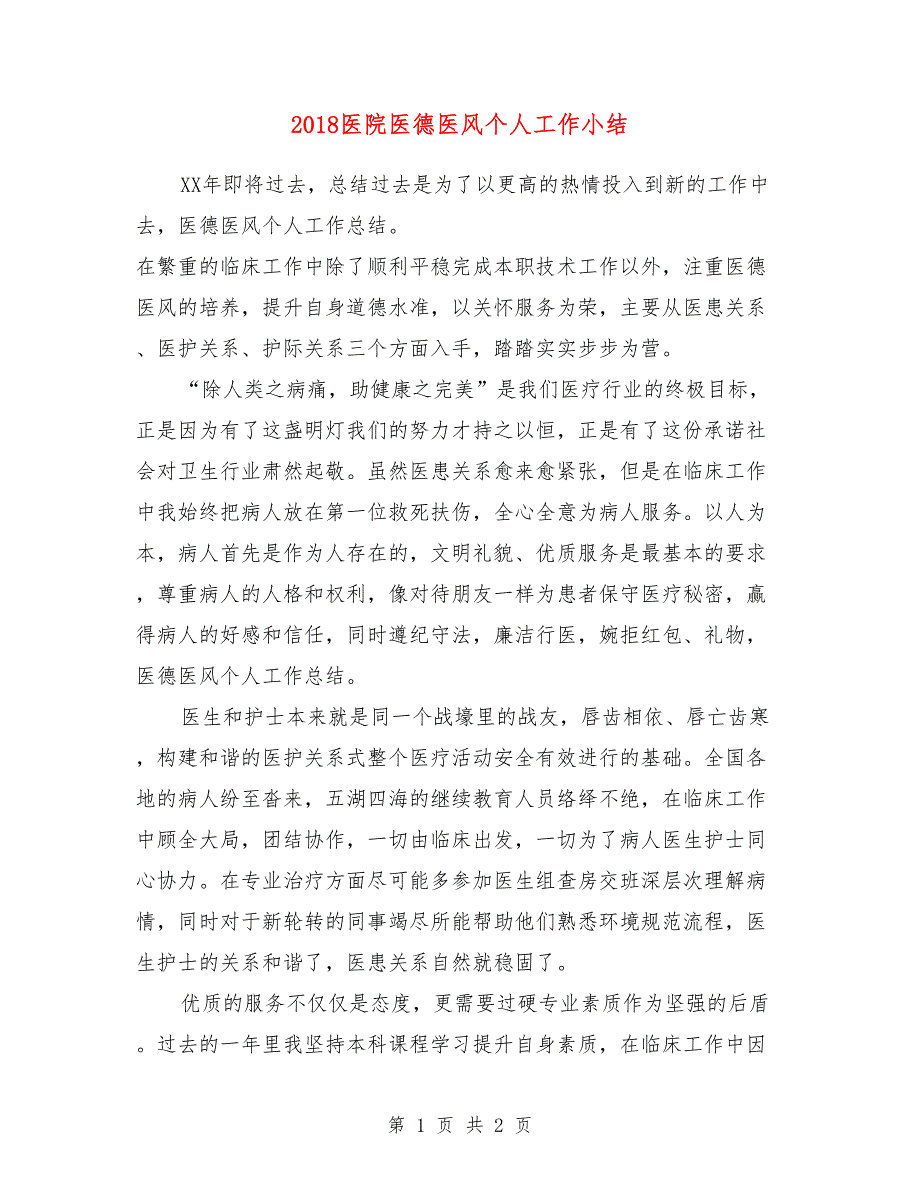 2018医院医德医风个人工作小结
XX年即将过去，总结过去是为了以更高的热情投入到新的工作中
去，医德医风个人工作总结。
在繁重的临床工作中除了顺利平稳完成本职技术工作以外，注重医德
医风的培养，提升自身道德水准，以关怀服务为荣，主要从医患关系
、医护关系、护际关系三个方面入手，踏踏实实步步为营。
“除人类之病痛，助健康之完美”是我们医疗行业的终极目标，
正是因为有了这盏明灯我们的努力才持之以恒，正是有了这份承诺社
会对卫生行业肃然起敬。虽然医患关系愈来愈紧张，但是在临床工作
中我始终把病人放在第一位救死扶伤，全心全意为病人服务。以人为
本，病人首先是作为人存在的，文明礼貌、优质服务是最基本的要求
，尊重病人的人格和权利，像对待朋友一样为患者保守医疗秘密，赢
得病人的好感和信任，同时遵纪守法，廉洁行医，婉拒红包、礼物，
医德医风个人工作总结。
医生和护士本来就是同一个战壕里的战友，唇齿相依、唇亡齿寒
，构建和谐的医护关系式整个医疗活动安全有效进行的基础。全国各
地的病人纷至沓来，五湖四海的继续教育人员络绎不绝，在临床工作
中顾全大局，团结协作，一切由临床出发，一切为了病人医生护士同
心协力。在专业治疗方面尽可能多参加医生组查房交班深层次理解病
情，同时对于新轮转的同事竭尽所能帮助他们熟悉环境规范流程，医
生护士的关系和谐了，医患关系自然就稳固了。
优质的服务不仅仅是态度，更需要过硬专业素质作为坚强的后盾
。过去的一年里我坚持本科课程学习提升自身素质，在临床工作中因
第 1 页 共 2 页